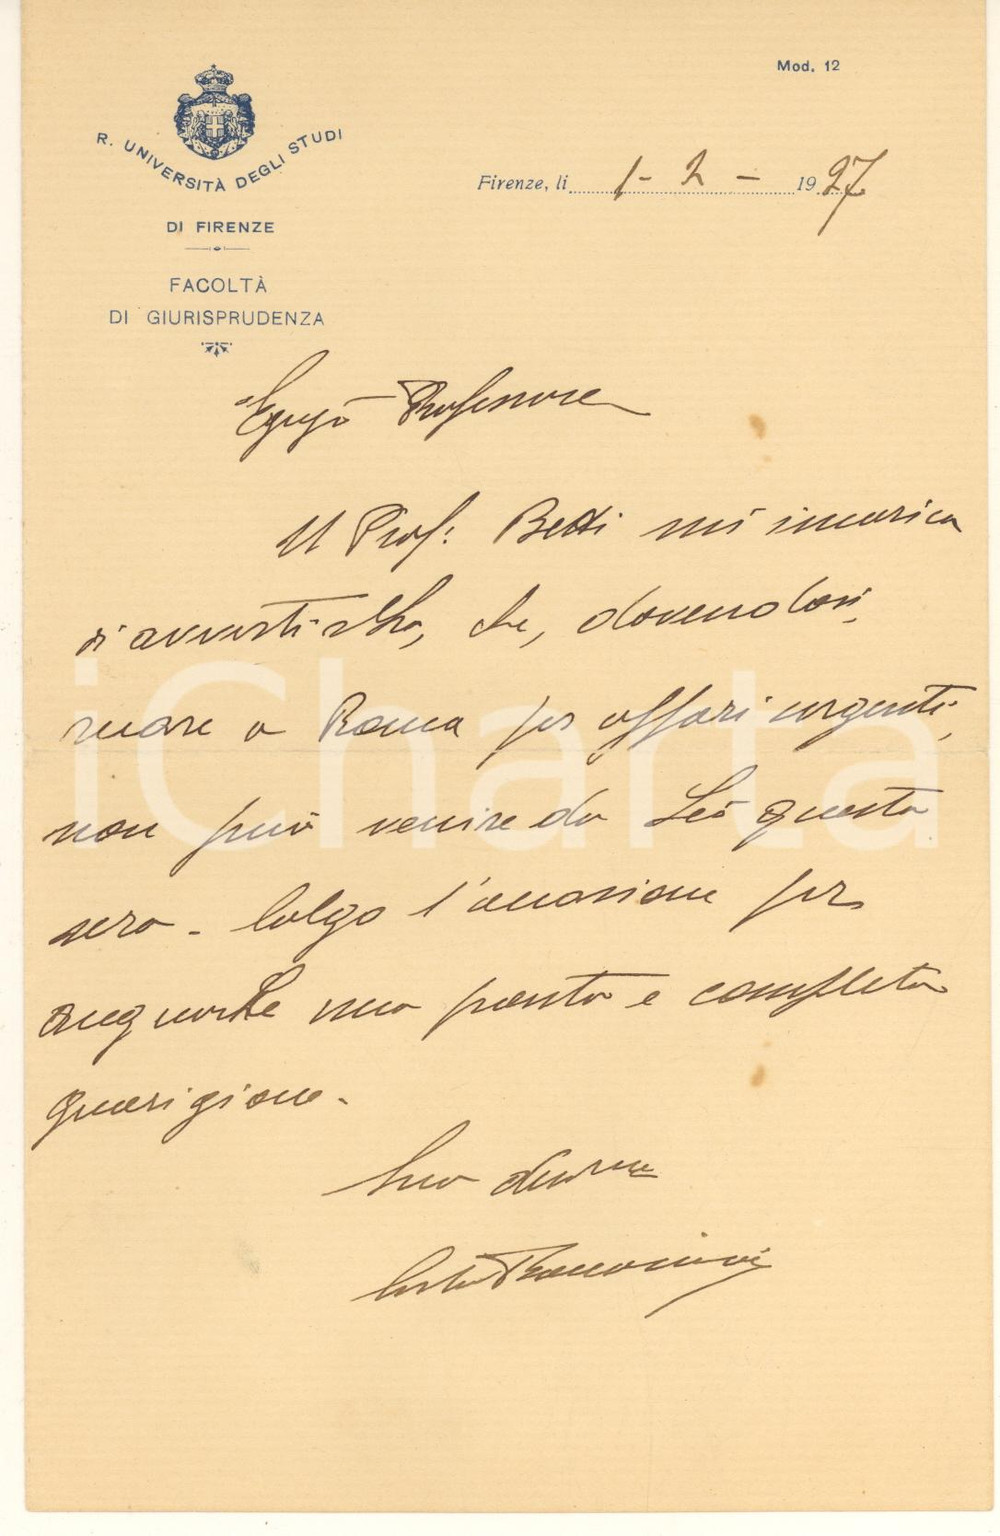 Mod. 12
R. UNIVERSITÀ DEGLI STUDI
DI FIRENZE
FACOLTÀ
DI GIURISPRUDENZA
Firenze, li 1-2- 1927
Egregio Professore
Il Prof. Betti mi incarica
di avvertirLa, che, dovendosi
recare a Roma per affari urgenti,
non può venire da Lei questa
sera - Colgo l'occasione per
augurarLe una pronta e completa
guarigione -
Suo
iCharta